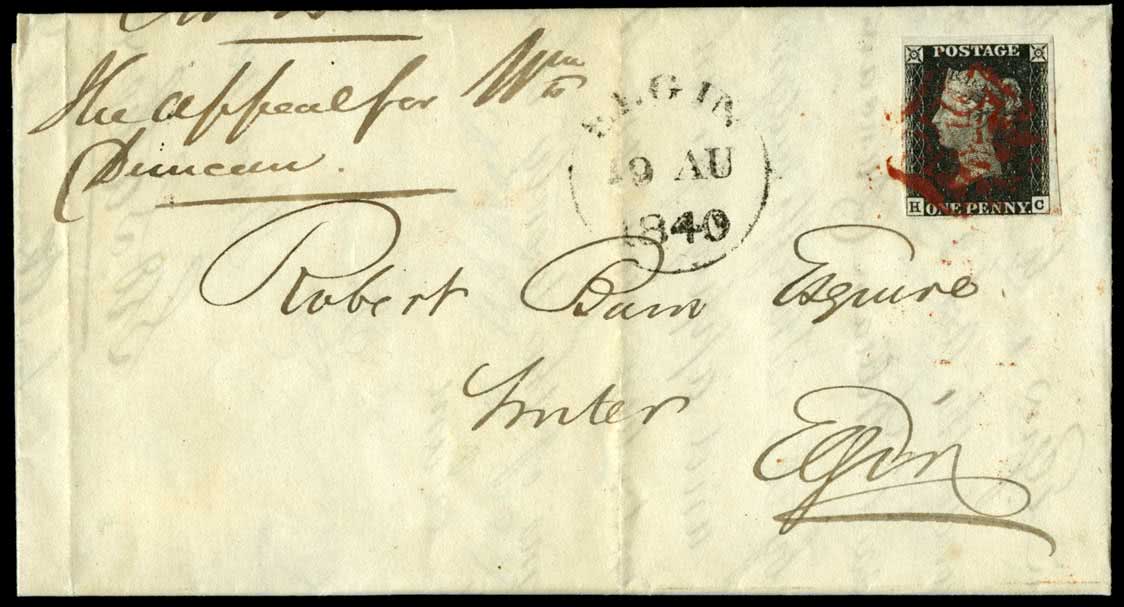 The appeal for Wm
Duncan.
ELGIN
19 AU
1840
POSTAGE
H ONE PENNY. C
Robert Esquire
Writer
Elgin